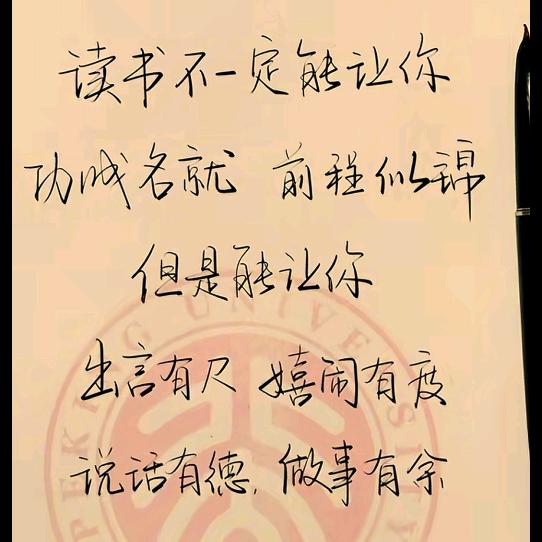 读书不一定能让你
功成名就 前程似锦
但是能让你
出言有尺 嬉闹有度
说话有德,做事有余
PEKING UNIVERSITY